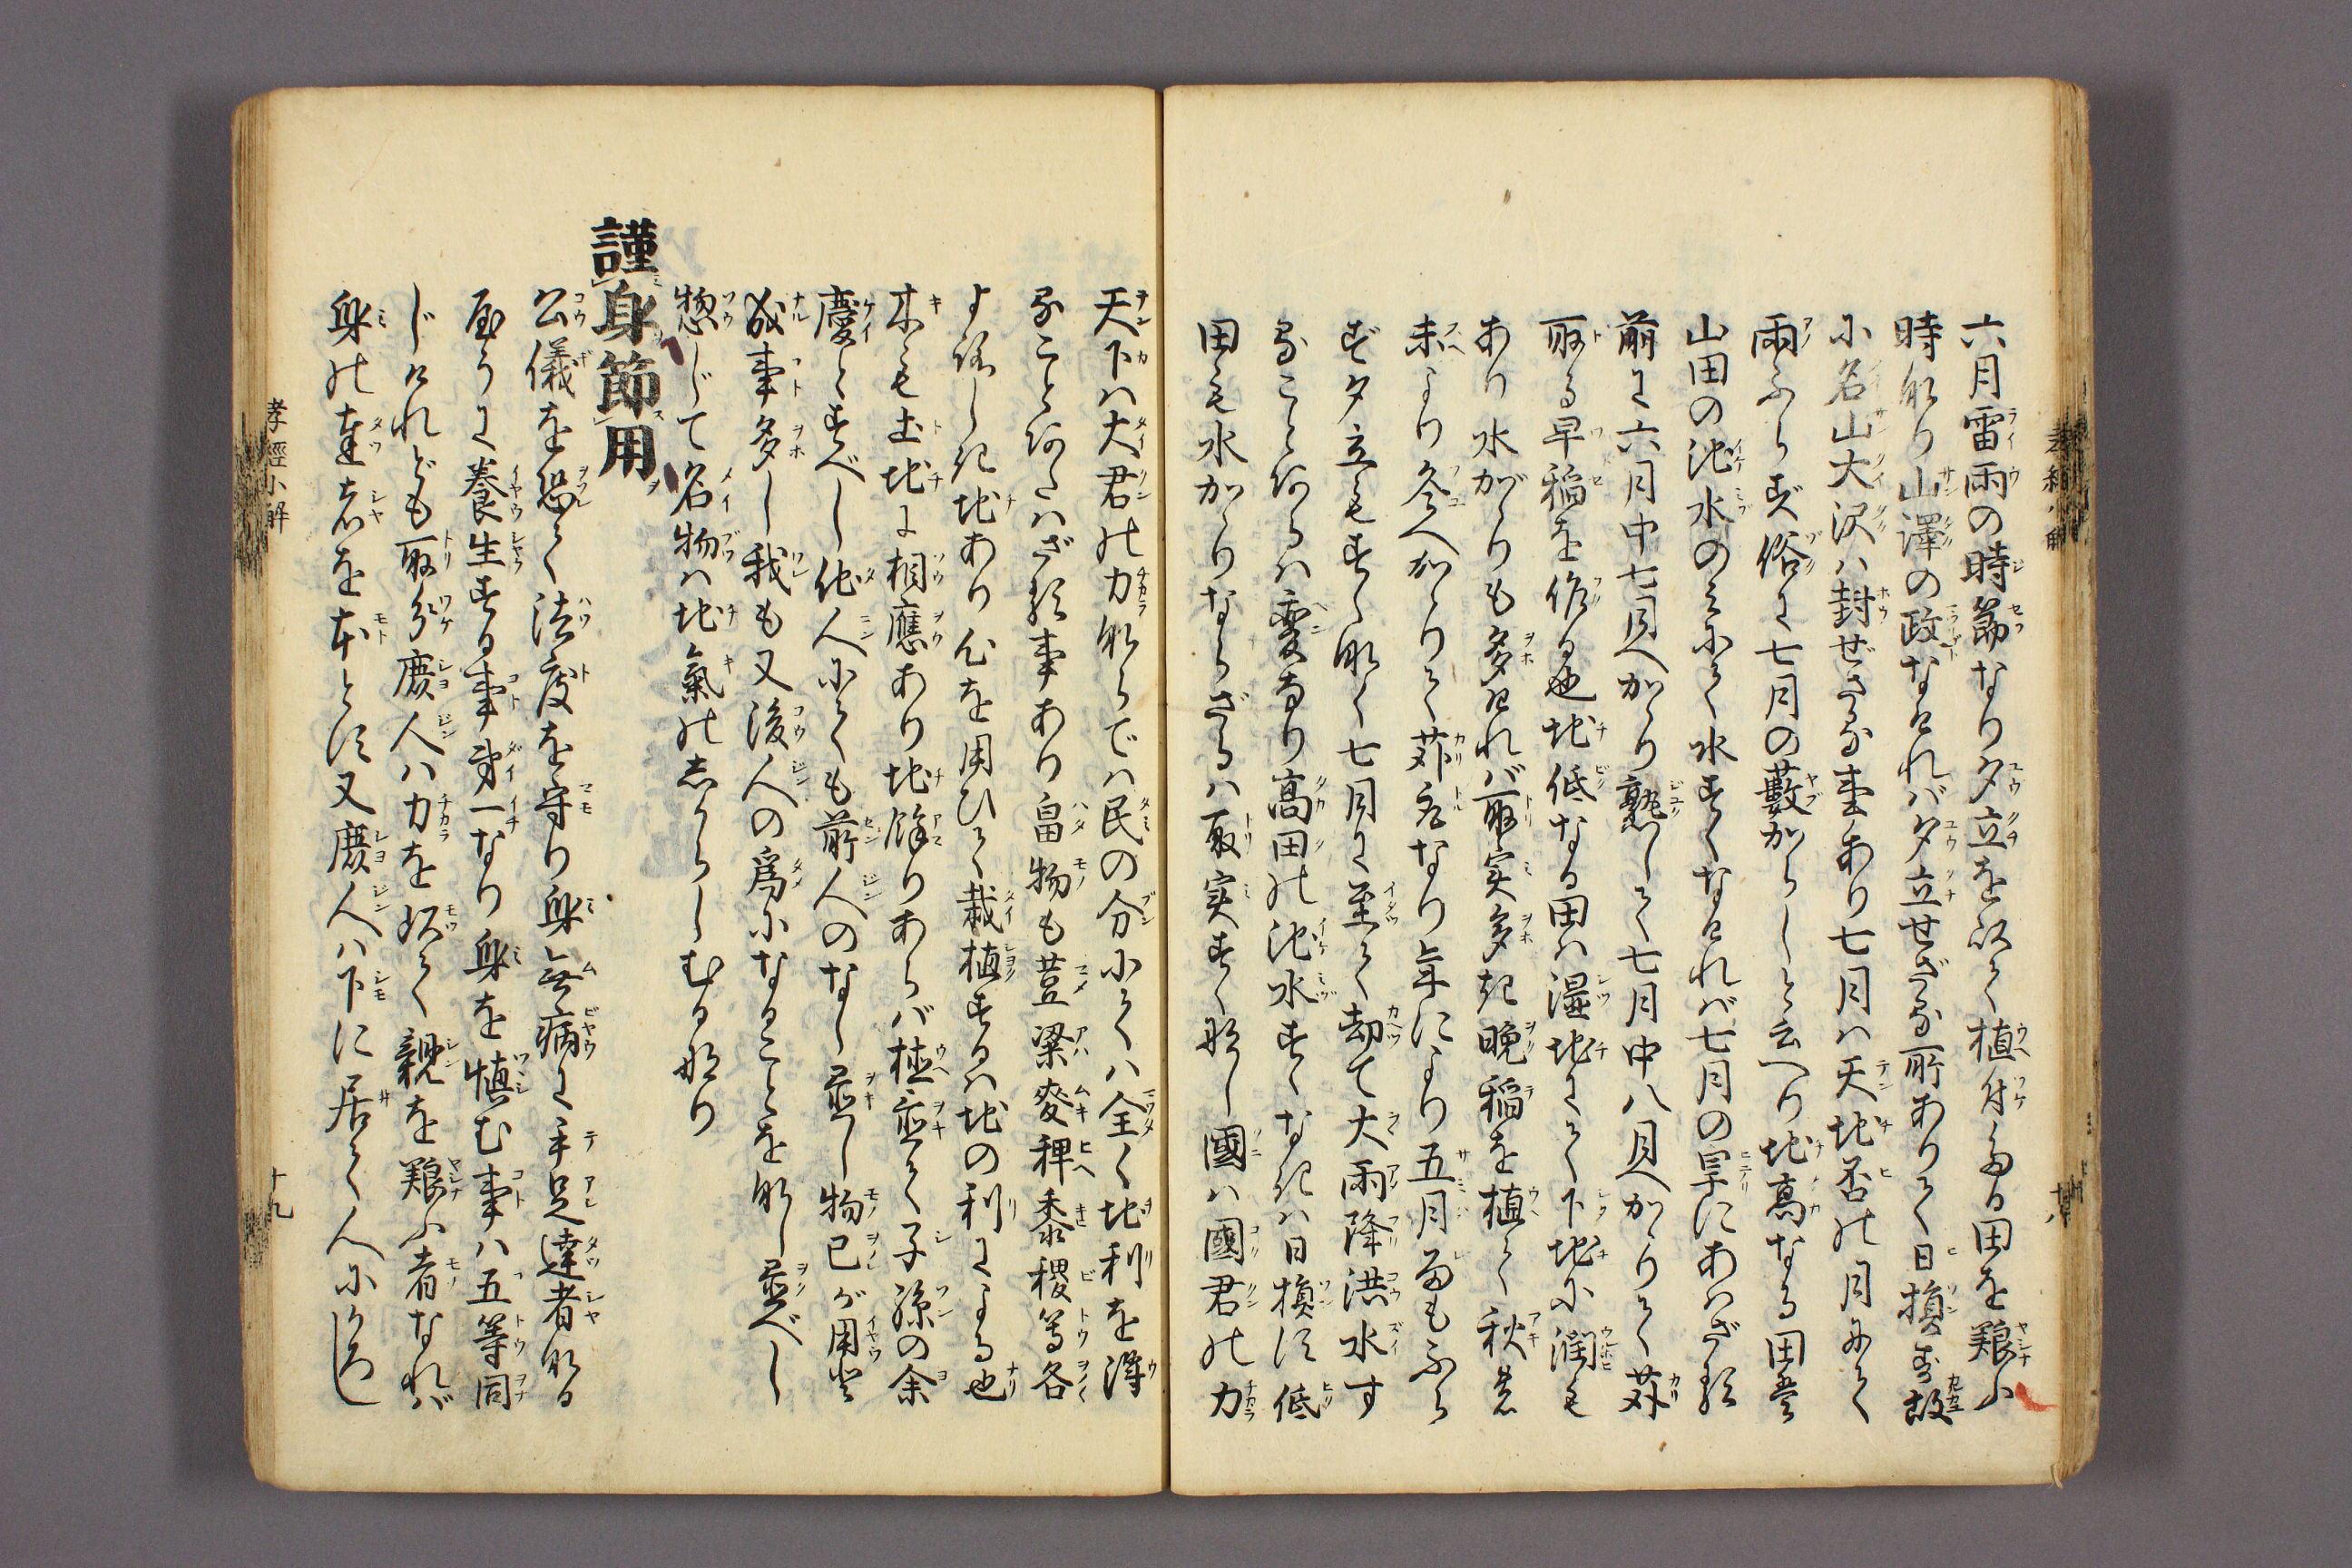 六月雷雨の時節なり夕立を以て植付る田を養ふ
時なり山澤の政なければ夕立せざる所ありて日損す故
に名山大沢ハ封ぜざる事あり七月ハ天地否の月にて
雨ふらず俗に七月の藪からしと云へり地高なる田並
山田の池水のみにて水すくなければ七月の旱にあはざる
前に六月中七月へかゝり熟して七月中八月へかゝりて苅
取る早稲を作る也地低なる田ハ湿地にて下地に潤も
あり水がゝりも多ければ取実多き晩稲を植て秋の
末より冬へかゝりて苅取なり年により五月雨もふら
ず夕立もすくなく七月に至て却て大雨降洪水す
ることあるハ変なり高田の池水すくなきハ日損し低
田も水かゝりならざるハ取実すくなし國ハ國君の力
孝經小解
十八
天下ハ大君の力ならでハ民の分にてハ全く地利を得
ることあたハざる事あり畠物も荳粱麥稗黍稷等各
よろしき地あり心を用ひて栽植するハ地の利による也
木も土地に相應あり地餘りあらバ植置て子孫の余
慶とすべし他人にても前人のなし置し物己が用と
成事多し我も又後人の為になることをなし置べし
惣じて名物ハ地氣のしからしむる也
謹身節用
公儀を恐て法度を守り身無病に手足達者なる
やうに養生する事第一なり身を慎む事ハ五等同
じけれども取分庶人ハ力を以て親を養ふ者なれバ
身の達者を本とす又庶人ハ下に居て人に
孝經小解
十九